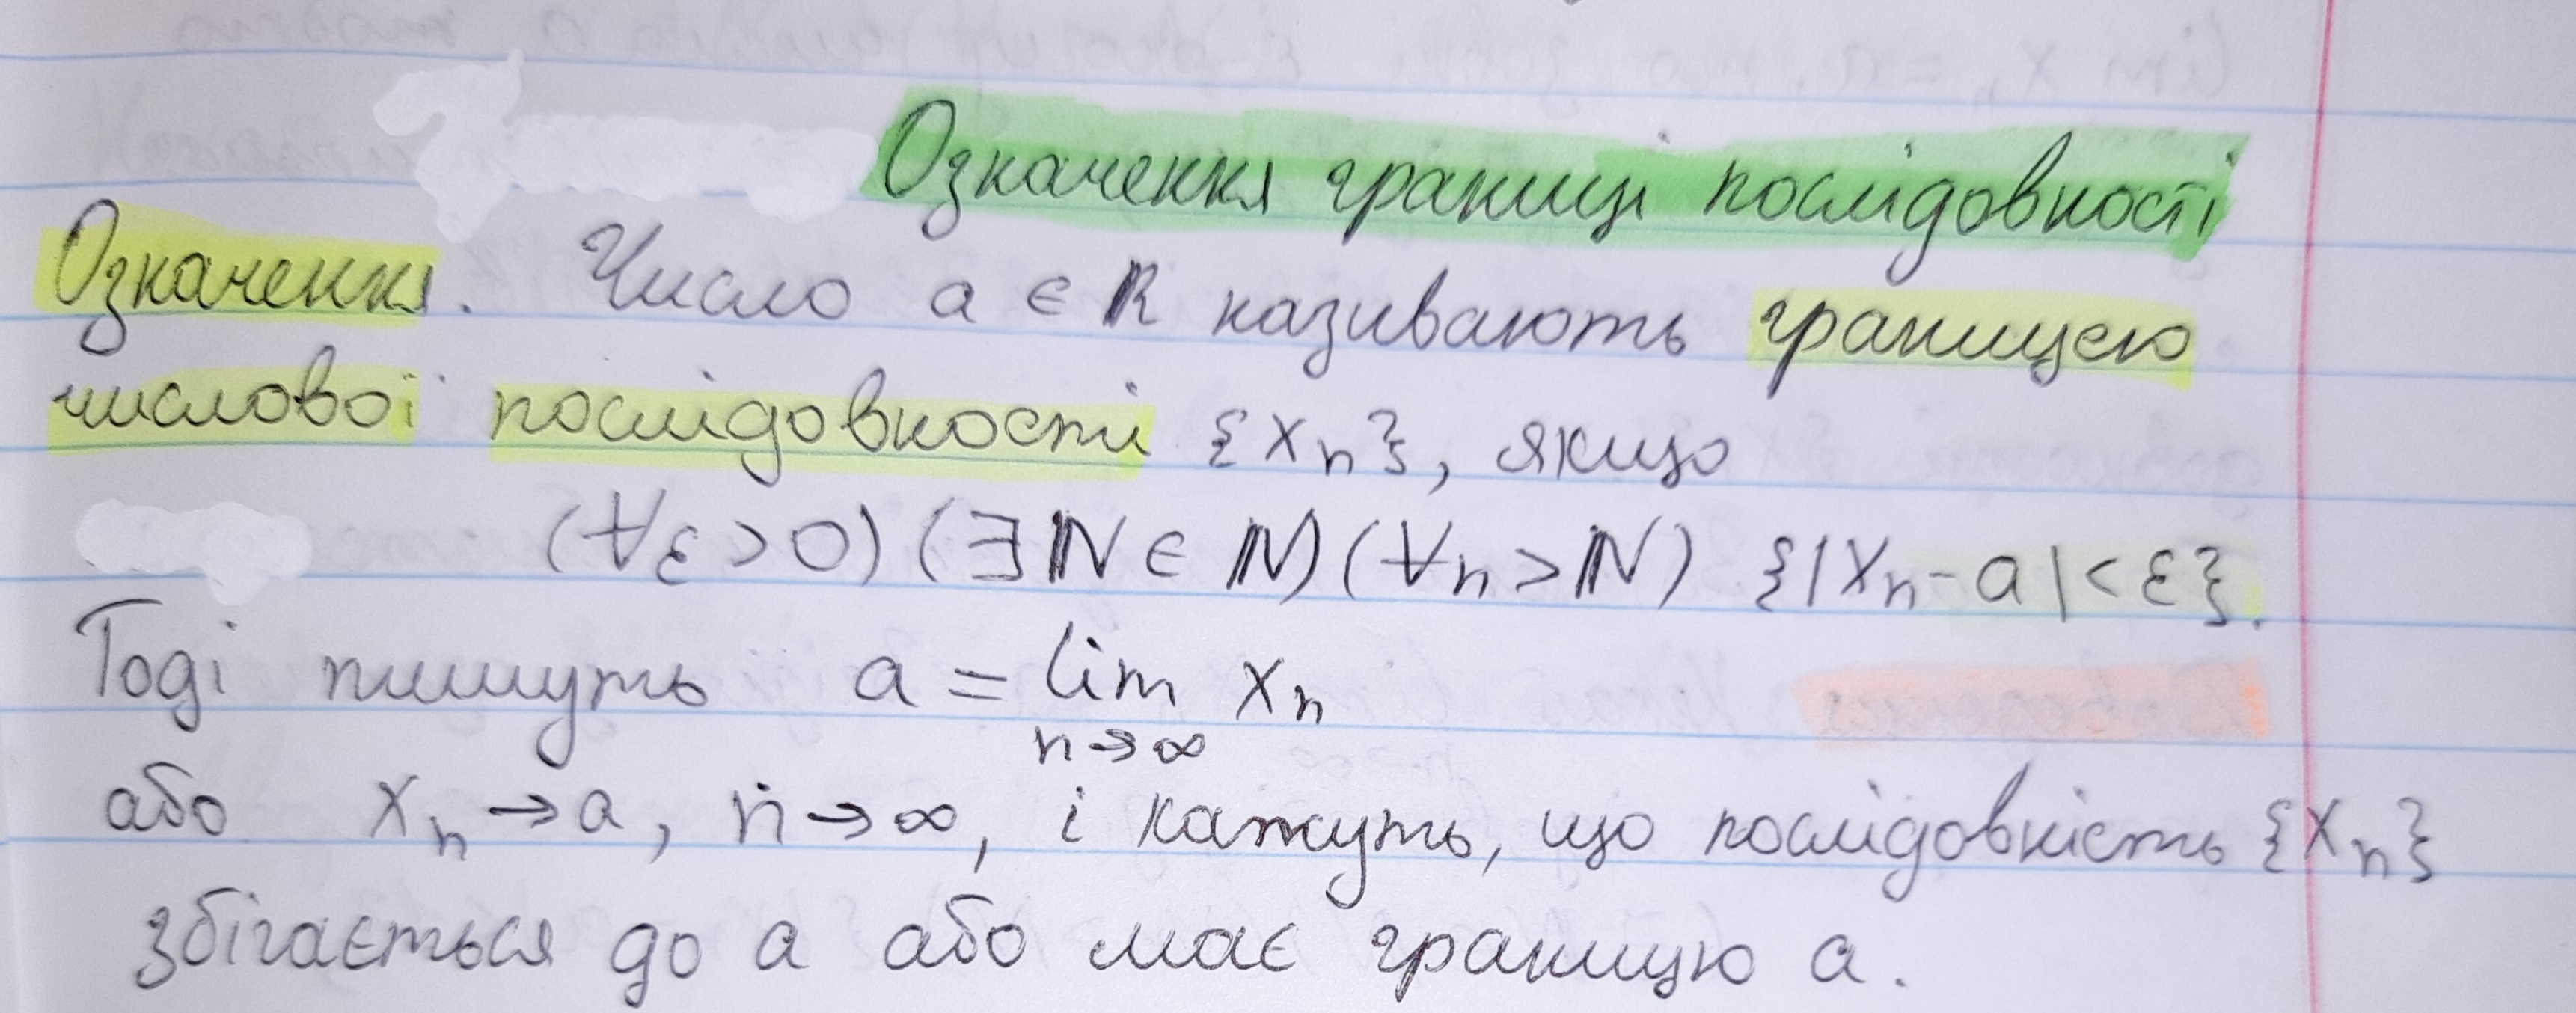 Означення границі послідовності
Означення. Число a ∈ ℝ називають границею
числової послідовності {xₙ}, якщо
(∀ε>0) (∃ℕ ∈ ℕ) (∀n>ℕ) {|xₙ - a| < ε}.
Тоді пишуть a = lim xₙ
n→∞
або xₙ → a, n→∞, і кажуть, що послідовність {xₙ}
збігається до a або має границю a.